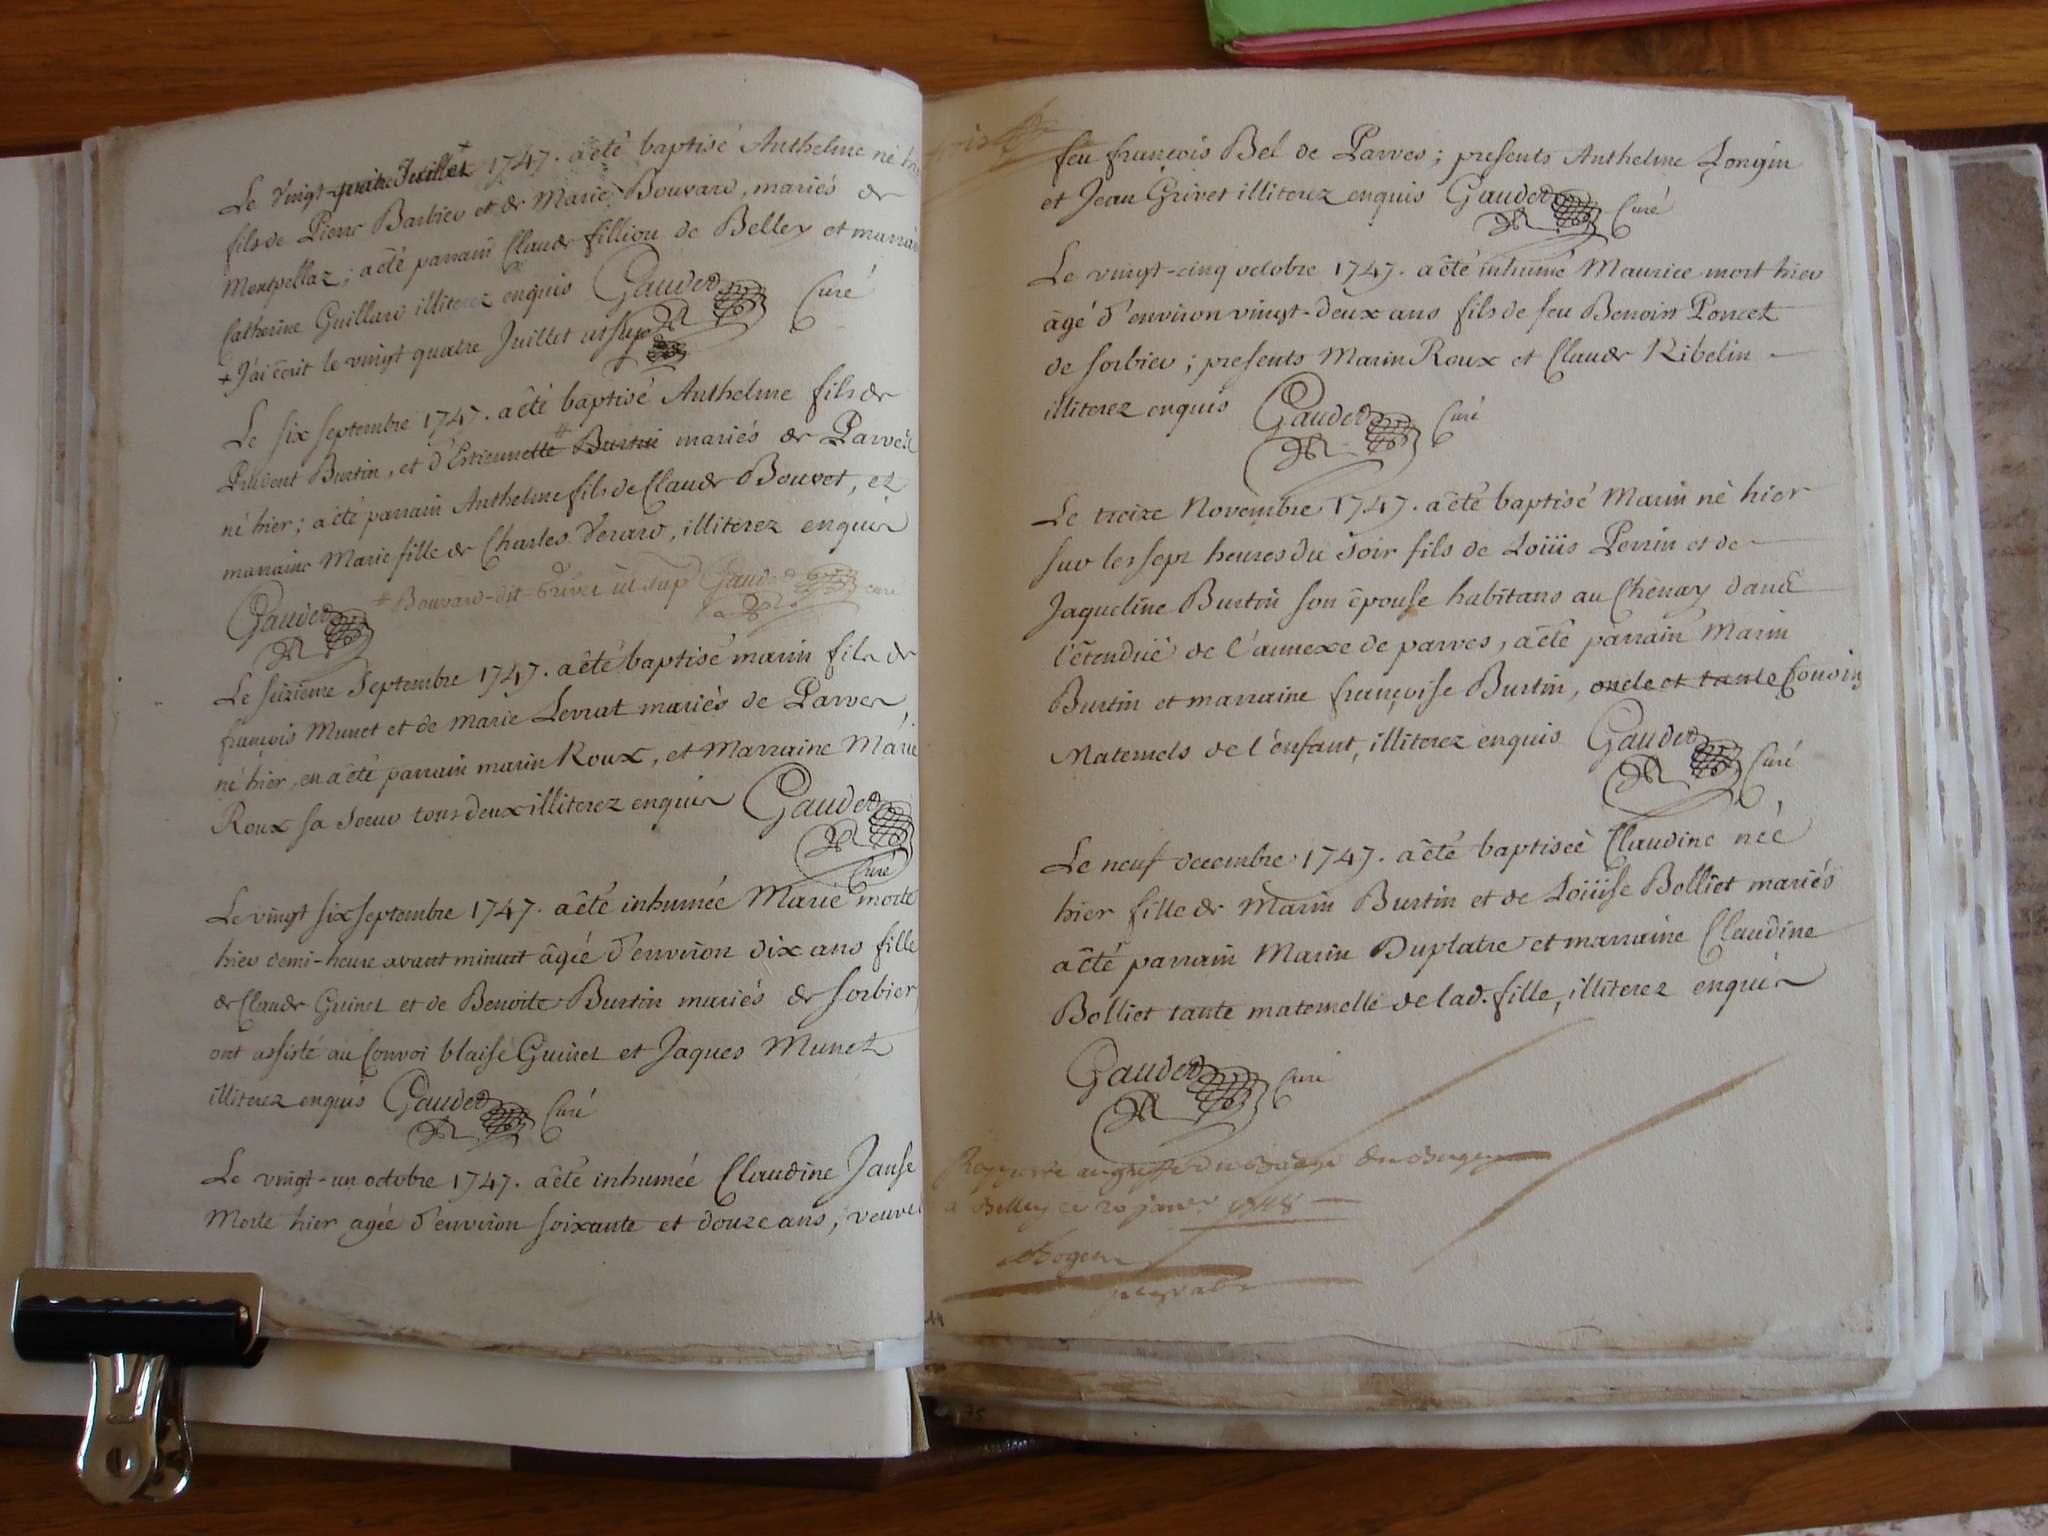 Le vingt-quatre Juillet + 1747. a été baptisé Anthelme né hier
fils de Pierre Barbier et de Marie Bouvard, mariés de
Montpellaz; a été parrain Claude filliou de Belley et marraine
Catherine Guillard illiterez enquis Gaudet Curé
+ J'ai écrit le vingt quatre Juillet ut sup
Le six septembre 1747. a été baptisé Anthelme fils de
Prudent Burtin, et d'Estiennette # Burtin mariés de Parves
né hier; a été parrain Anthelme fils de Claude Bouvet, et
marraine Marie fille de Charles Verard, illiterez enquis
Gaudet # Bouvard-dit-Grivet ut sup Gaudet curé
Le seizieme Septembre 1747. a été baptisé marin fils de
françois Munet et de marie Levrat mariés de Parves,
né hier, en a été parrain marin Roux, et Marraine Marie
Roux sa soeur tous deux illiterez enquis Gaudet
Curé
Le vingt six septembre 1747. a été inhumée Marie morte
hier demi-heure avant minuit âgée d'environ dix ans fille
de Claude Guinet et de Benoite Burtin mariés de Sorbier,
ont assisté au Convoi blaise Guinet et Jaques Munet
illiterez enquis Gaudet Curé
Le vingt-un octobre 1747. a été inhumée Claudine Janse
Morte hier agée d'environ soixante et douze ans, veuve
feu françois Bel de Parves; presents Anthelme Longin
et Jean Grivet illiterez enquis Gaudet Curé
Le vingt-cinq octobre 1747. a été inhumé Maurice mort hier
âgé d'environ vingt-deux ans fils de feu Benoist Poncet
de Sorbier; presents Marin Roux et Claude Ribelin
illiterez enquis Gaudet Curé
Le treize Novembre 1747. a été baptisé Marin né hier
sur les sept heures du Soir fils de Loüis Perrin et de
Jaqueline Burtin son épouse habitans au Chênay dans
l'étenduë de l'annexe de parves, a été parrain Marin
Burtin et marraine françoise Burtin, oncle et tante Cousins
Maternels de l'enfant, illiterez enquis Gaudet Curé
Le neuf decembre 1747. a été baptisée Claudine née
hier fille de Marin Burtin et de Loüise Bolliet mariés
a été parrain Marin Duplatre et marraine Claudine
Bolliet tante maternelle de lad. fille, illiterez enquis
Gaudet Curé
a Belley ce 20 janvr 1748